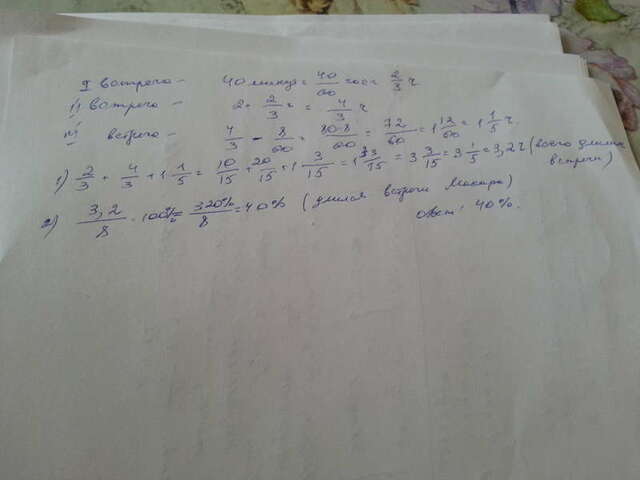 I встреча - 40 минут = 40/60 час = 2/3 ч
II встреча - 2 · 2/3 ч = 4/3 ч
III встреча 4/3 - 8/60 = 80-8/60 = 72/60 = 1 12/60 = 1 1/5 ч.
1) 2/3 + 4/3 + 1 1/5 = 10/15 + 20/15 + 1 3/15 = 1 33/15 = 3 3/15 = 3 1/5 = 3,2 ч (всего длились встречи)
2) 3,2/8 · 100% = 320%/8 = 40% (длился встречи Макара)
ответ: 40%.